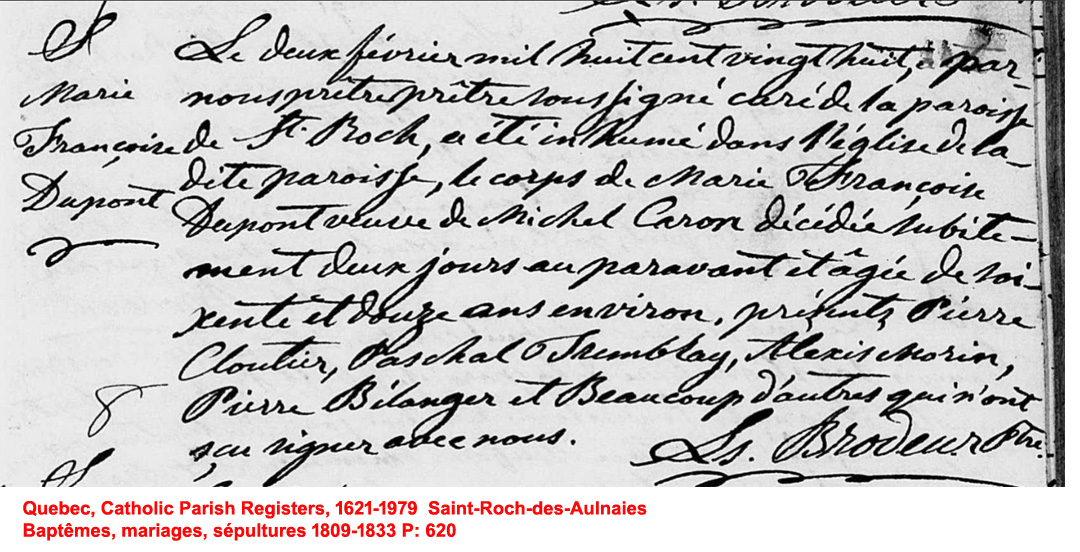 S
Marie
Françoise
Dupont
8
Le deux février mil huit cent vingt huit, par
nous prêtre prêtre soussigné curé de la paroisse
de St. Roch, a été inhumé dans l'église de la
dite paroisse, le corps de Marie Françoise
Dupont veuve de Michel Caron décédée subite-
ment deux jours au paravant et âgée de soi-
xente et douze ans environ, présents, Pierre
Cloutier, Paschal Tremblay, Alexis Morin,
Pierre Bélanger et Beaucoup d'autres qui n'ont
sçu signer avec nous.
Ls. Brodeur Ptre.
S
Quebec, Catholic Parish Registers, 1621-1979 Saint-Roch-des-Aulnaies
Baptêmes, mariages, sépultures 1809-1833 P: 620